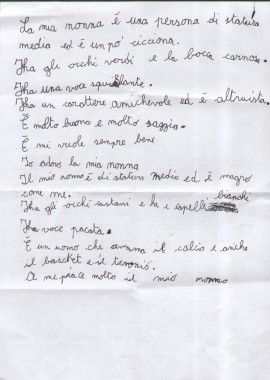 La mia nonna è una persona di statura
media ed è un pò cicciona.
Jha gli occhi verdi e la boca carnosa.
Jha una voce squillante.
Jha un carattere amichevole ed è altruista.
È molto buono e molto saggio.
E mi vuole sempre bene.
Io adoro la mia nonna
Il mio nonno è di statura medio ed è magro
come me. bianchi
Jha gli occhi castani e ha e capelli
Jha voce pacata.
È un uomo che amma il calcio e anche
il basket e il tennis.
A me piace molto il mio nonno